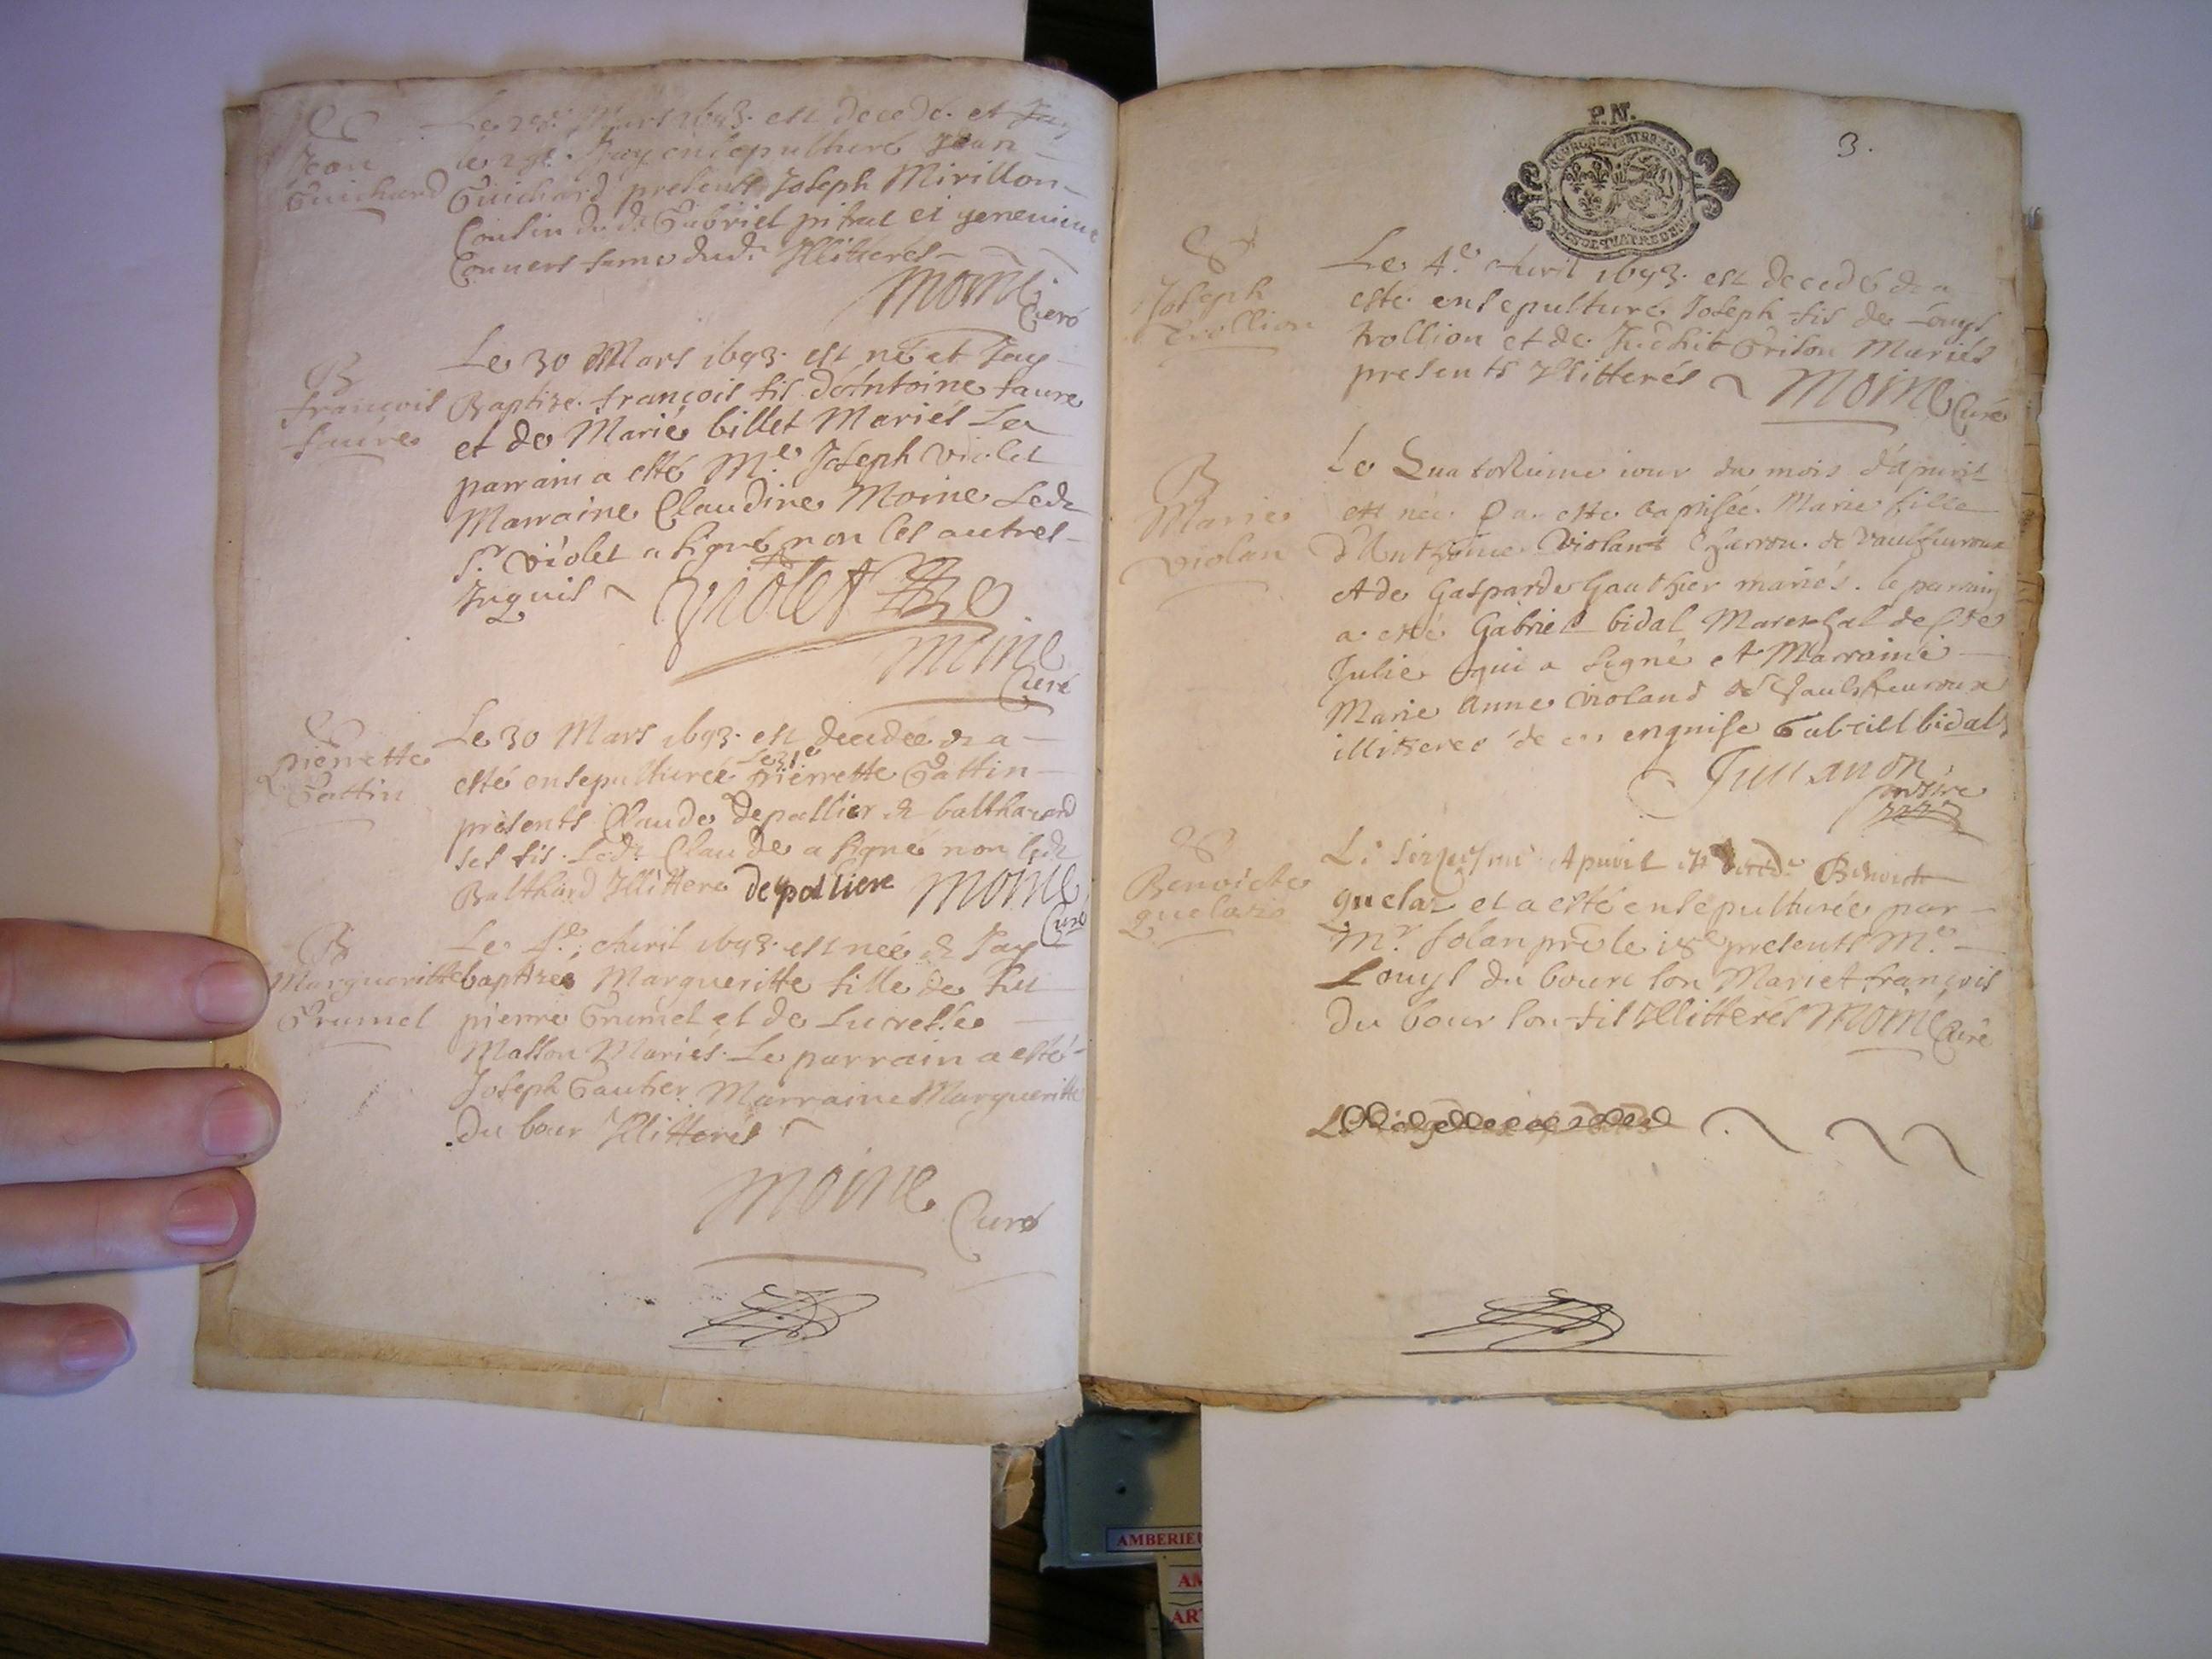 Jean
Guichard
Le Mars 1693. est decedé. et
Jay ensepulturé Jean
Guichard presents Joseph Mirillon
Cousin dud. Gabriel pitrat et genevieve
Convers fame dud. Illitterés
Moine
Curé
B
françois
faure
Le 30 Mars 1693. est né et Jay
Baptize. françois fis d'Antoine faure
et de Marie billet Mariés Le
parrain a esté M.e Joseph Violet
Marraine Claudine Moine Led
S.r Violet a signé non les autres
Inquis
Violet
Moine
Curé
pierrette
Gattin
Le 30 Mars 1693. est decedée & a
esté ensepulturée Le 31e pierrette Gattin
presents Claude depallier & balthazard
ses fis. Led. Claude a signé non led
Balthard Illitteré depalliere Moine
Curé
B
Margueritte
Grumel
Le Avril 1693. est née & Jay
baptizée Margueritte fille de
pierre Grumel et de Lucresse
Masson Mariés. Le parrain a esté
Joseph Gautier Marraine Margueritte
du bour Illitterés
Moine
Curé
P.N.
3.
Joseph
trollion
Le 4.e Avril 1693. est decedé & a
esté ensepulturé Joseph fis de Louys
trollion et de Judhit Grison Mariés
presents Illitterés Moine Curé
B
Marie
Violan
Le Quatorsieme iour du mois d'apuril
est née & a esté baptisée Marie fille
d'Anthoine Violand Charron de Vaulsseuroux
et de Gasparde Gauthier mariés. le parrain
a esté Gabriel bidal Mareschal de Ste
Julie qui a signé et Marraine
Marie Anne Violand de Vaulsseuroux
illitteree de ce enquise Gabriel bidal
Benoicte
guelaz
Le Apuril est Benoicte
guelaz et a esté ensepulturée par
M.r Jolan pre le 18e presents M.e
Louys du bourc son Mari et françois
du bour son fis Illitterés Moine Curé
AMBERIEU
AM
ART